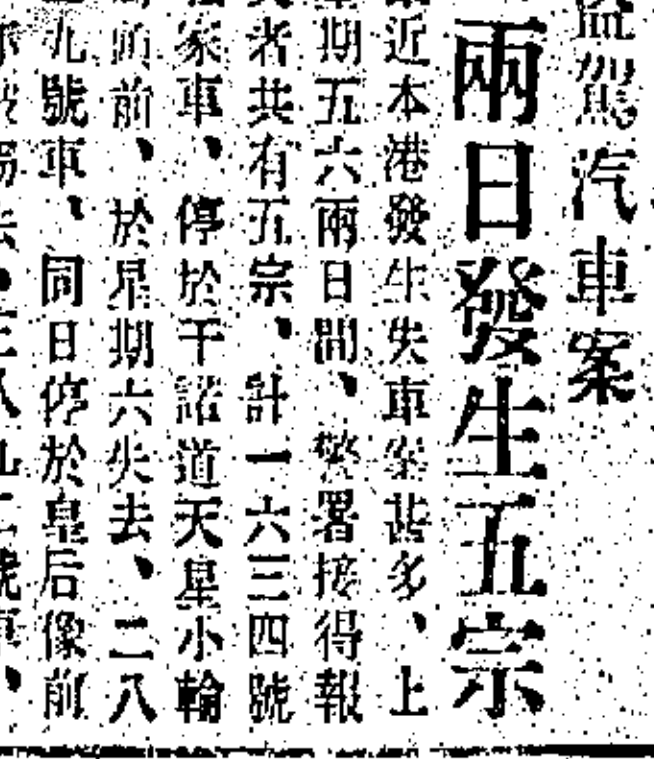 駕汽車案
兩日發生五宗
近本港發生失車案甚多、上
期五六兩日間、警署接得報
者共有五宗、計一六三四號
家車、停於干諾道天星小輪
前、於星期六失去、二八
九號車、同日停於皇后像前